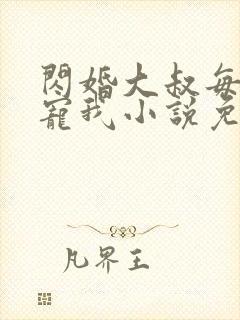 閃婚大叔每
寵我小說免
凡界王